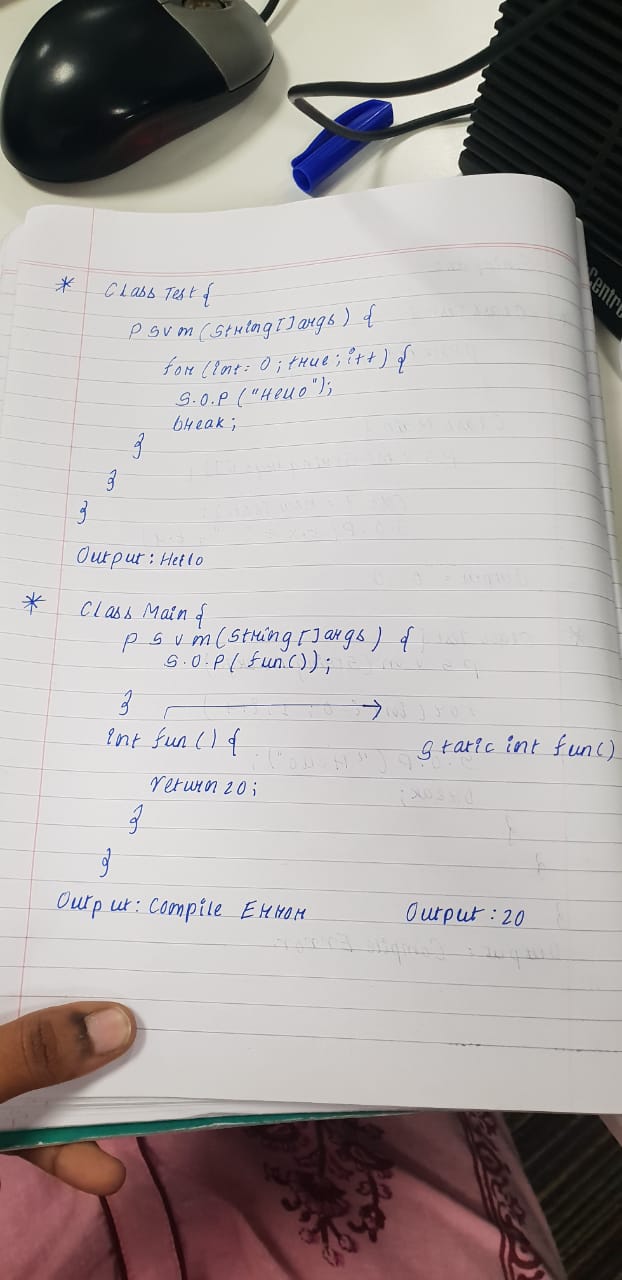 * Class Test {
P S V m (String[] args) {
for (int = 0 ; true ; i++) {
S.O.P ("Hello");
break;
}
}
}
Output : Hello
* Class Main {
P S V m (String[] args) {
S.O.P ( fun());
}
int fun () {
static int fun()
return 20;
}
}
Output : Compile Error
Output : 20
Centro